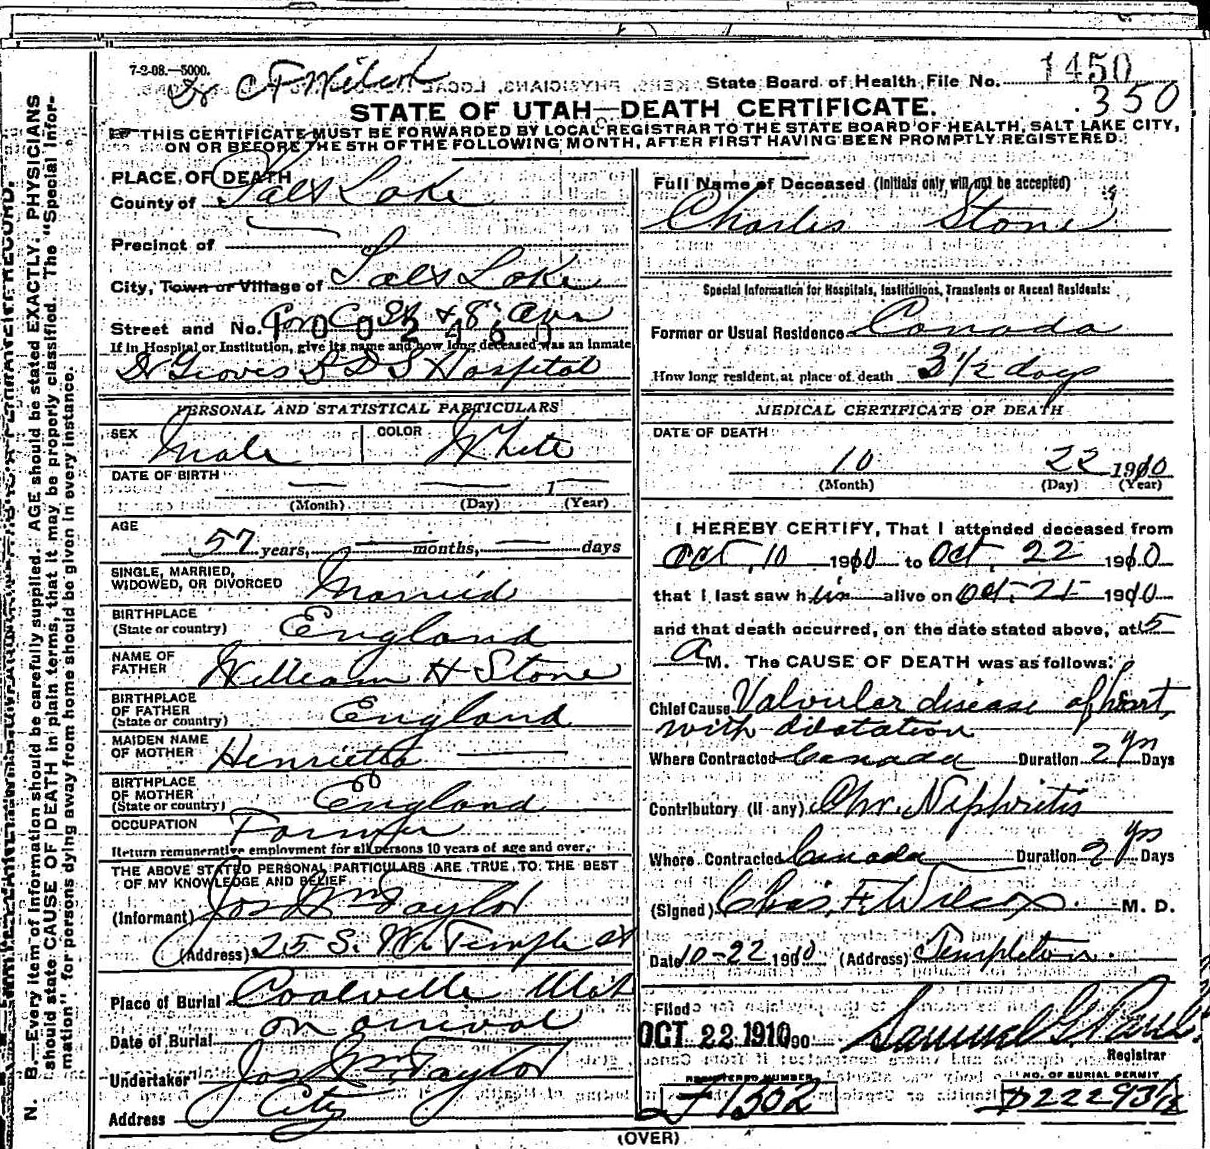 7-2-08.—5000.
Dr C F Wilcox
State Board of Health, File No. 1450
350
STATE OF UTAH—DEATH CERTIFICATE.
THIS CERTIFICATE MUST BE FORWARDED BY LOCAL REGISTRAR TO THE STATE BOARD OF HEALTH, SALT LAKE CITY,
ON OR BEFORE THE 5TH OF THE FOLLOWING MONTH, AFTER FIRST HAVING BEEN PROMPTLY REGISTERED.
N. B.—Every item of information should be carefully supplied. AGE should be stated EXACTLY. PHYSICIANS
should state CAUSE OF DEATH in plain terms, that it may be properly classified. The "Special Infor-
mation" for persons dying away from home should be given in every instance.
PLACE OF DEATH
County of Salt Lake
Precinct of
City, Town or Village of Salt Lake
Street and No. Cor C St & 8" Ave
1002460
If in Hospital or Institution, give its name and how long deceased was an inmate
Dr Groves L D S Hospital
PERSONAL AND STATISTICAL PARTICULARS
SEX Male COLOR White
DATE OF BIRTH — — 1—
(Month) (Day) (Year)
AGE
57 years, — months, — days
SINGLE, MARRIED,
WIDOWED, OR DIVORCED Married
BIRTHPLACE
(State or country) England
NAME OF
FATHER William H Stone
BIRTHPLACE
OF FATHER
(State or country) England
MAIDEN NAME
OF MOTHER Henrietta —
BIRTHPLACE
OF MOTHER
(State or country) England
OCCUPATION Farmer
Return remunerative employment for all persons 10 years of age and over.
THE ABOVE STATED PERSONAL PARTICULARS ARE TRUE TO THE BEST
OF MY KNOWLEDGE AND BELIEF
(Informant) Jos Wm Taylor
(Address) 25 S. W. Temple St
Place of Burial Coalville Utah
Date of Burial on arrival
Undertaker Jos Wm Taylor
Address City
Full Name of Deceased (Initials only will not be accepted)
Charles Stone
Special Information for Hospitals, Institutions, Transients or Recent Residents:
Former or Usual Residence Canada
How long resident at place of death 3 1/2 days
MEDICAL CERTIFICATE OF DEATH
DATE OF DEATH
10 22 1910
(Month) (Day) (Year)
I HEREBY CERTIFY, That I attended deceased from
Oct. 10 1910 to Oct. 22 1910
that I last saw him alive on Oct. 21 1910
and that death occurred, on the date stated above, at 5
A M. The CAUSE OF DEATH was as follows:
Chief Cause Valvular disease of heart,
with dilatation
Where Contracted Canada Duration 2 yrs Days
Contributory (if any) Chr. Nephritis
Where Contracted Canada Duration 2 yrs Days
(Signed) Chas. F. Wilcox M. D.
Date 10-22 1910 (Address) Templeton.
Filed
OCT 22 1910 90 Samuel G. Paul
Registrar
REGISTERED NUMBER NO. OF BURIAL PERMIT
F1302 D22293 1/2
(OVER)